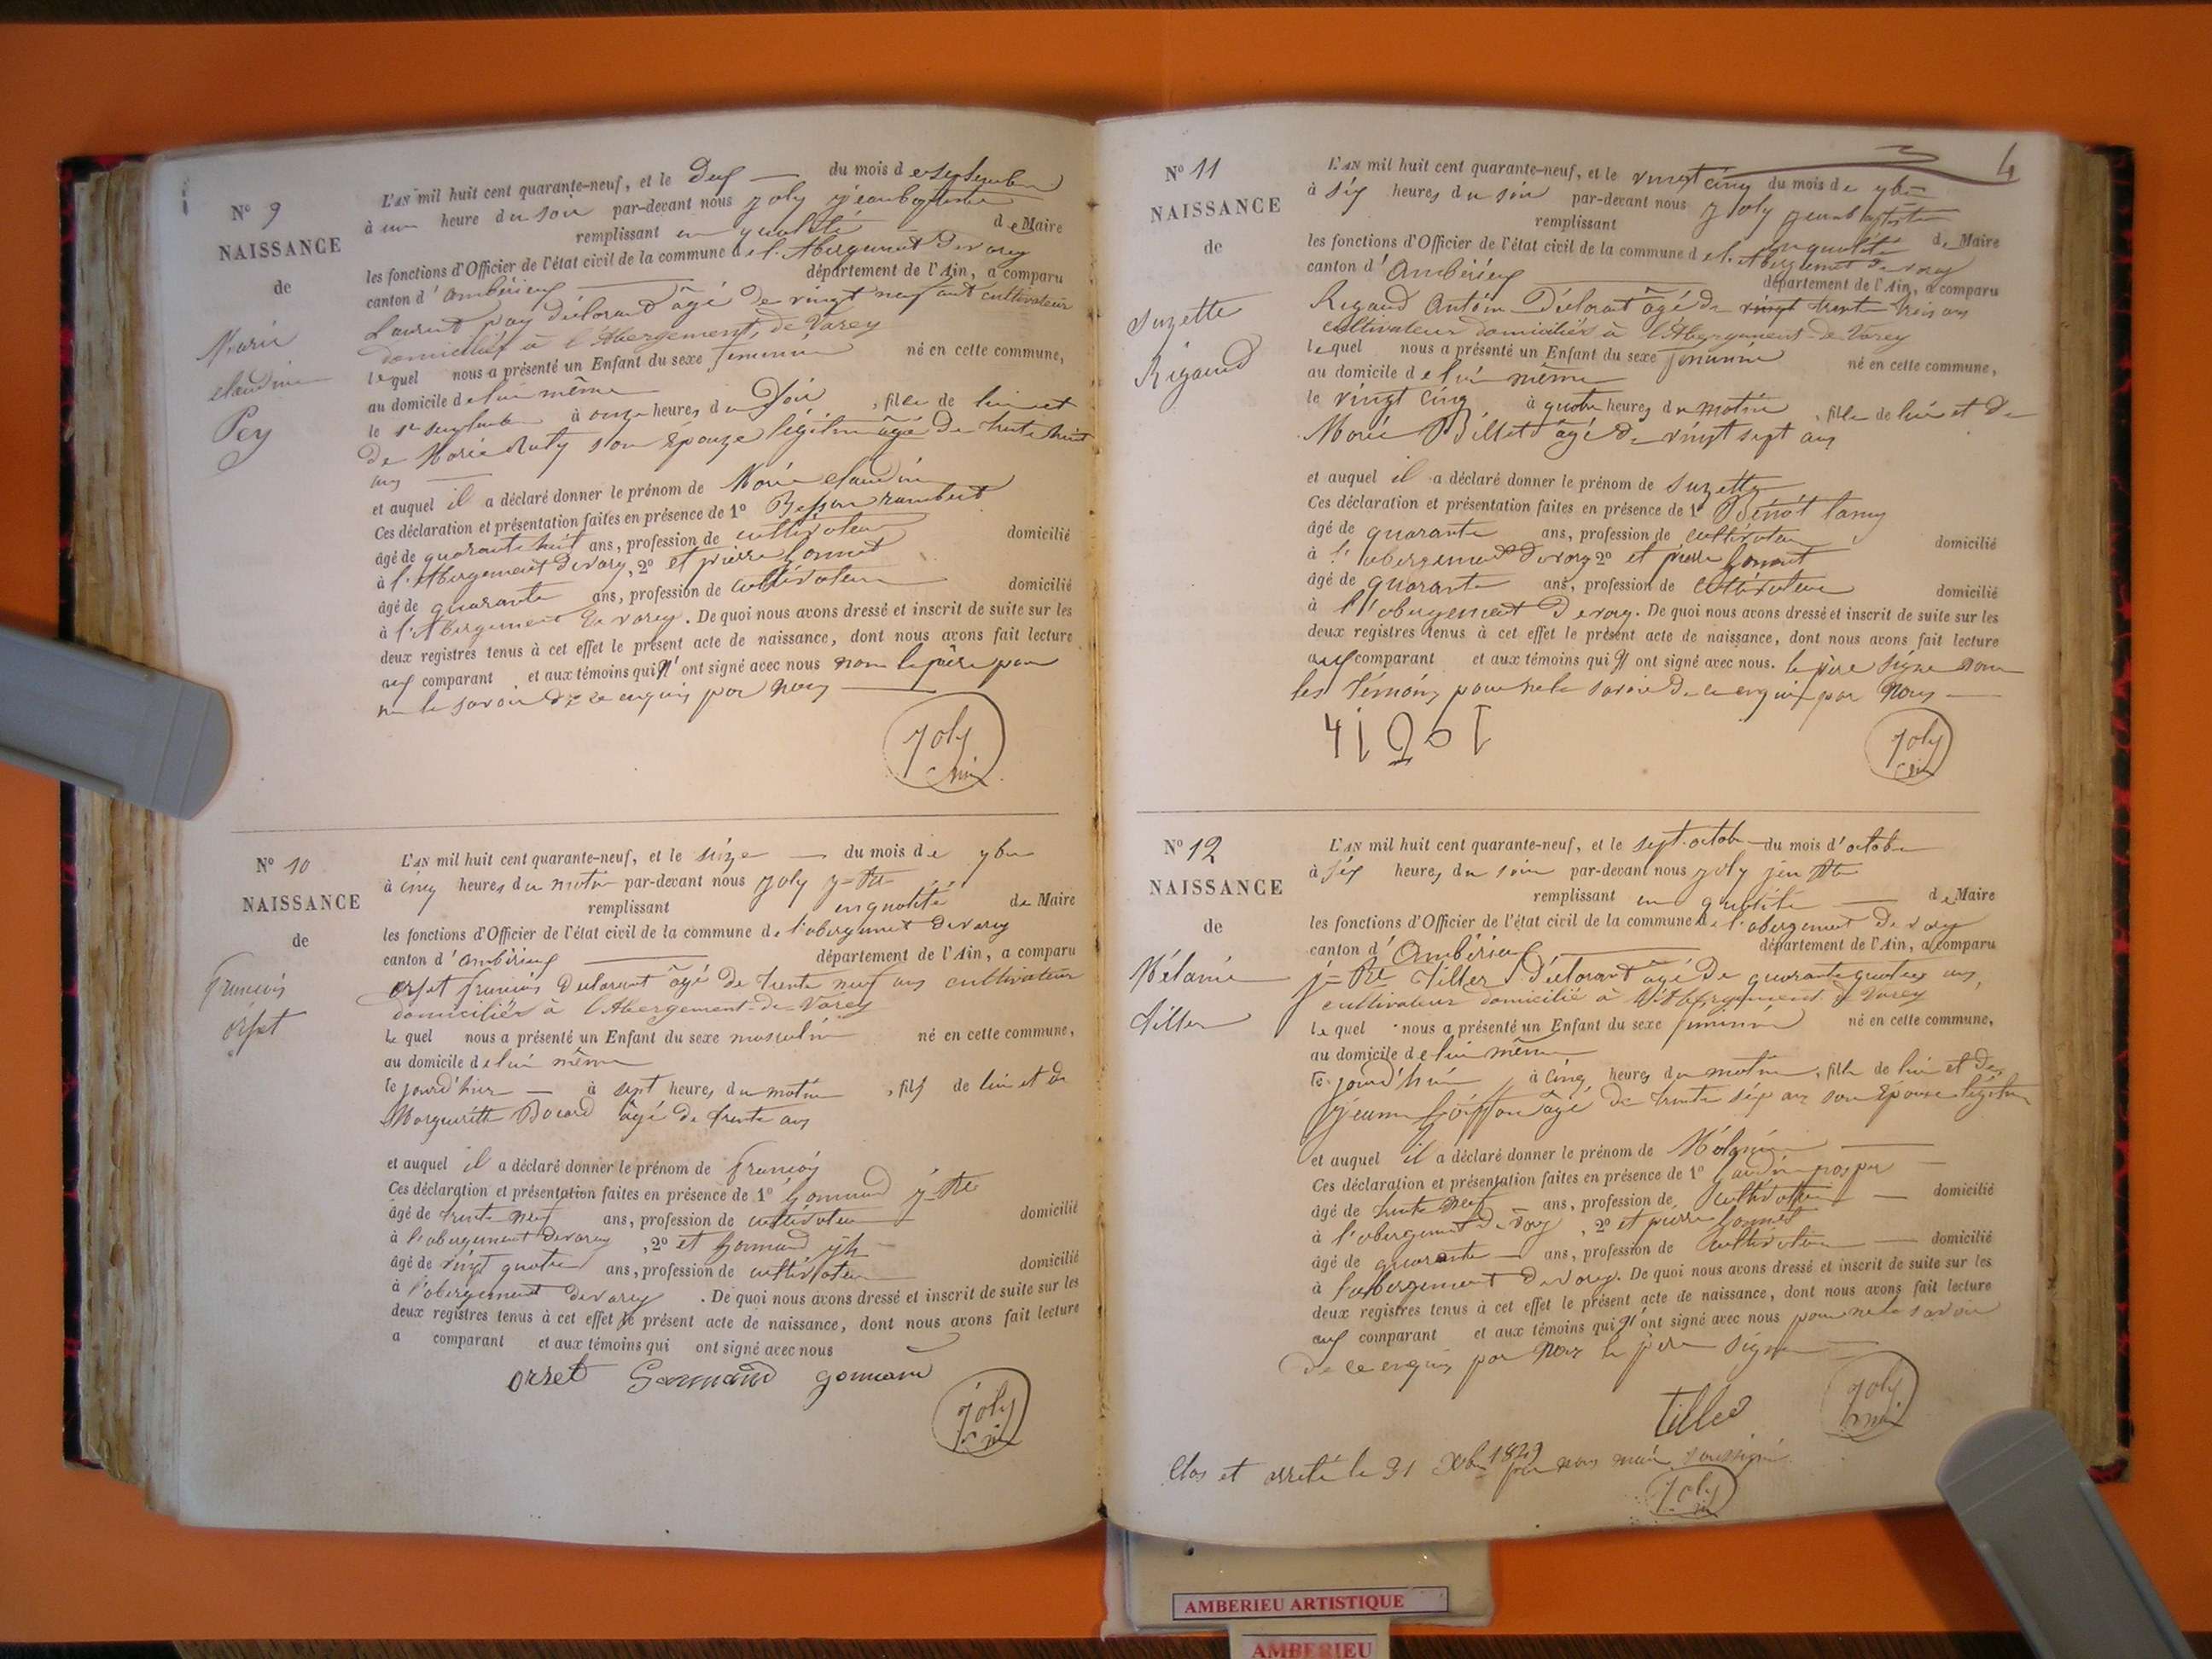 N° 9
NAISSANCE
de
Marie
claudine
Pey
L'AN mil huit cent quarante-neuf, et le deux du mois de septembre
à une heure du soir par-devant nous Joly jeanbaptiste
remplissant en qualité de Maire
les fonctions d'Officier de l'état civil de la commune de l'Abergement de varey
canton d'ambérieux département de l'Ain, a comparu
Laurent pay déclarant âgé de vingt neuf ans cultivateur
domicilié à l'Abergement de Varey
lequel nous a présenté un Enfant du sexe feminin né en cette commune,
au domicile de lui même
le 1er septembre à onze heures du soir, fille de lui et
de Marie son épouze légitime âgé de trente huit
ans
et auquel il a déclaré donner le prénom de Marie claudine
Ces déclaration et présentation faites en présence de 1° Besson rambert
âgé de quarante huit ans, profession de cultivateur domicilié
à l'Abergement de varey, 2° et pierre bonnet
âgé de quarante ans, profession de cultivateur domicilié
à l'Abergement de varey. De quoi nous avons dressé et inscrit de suite sur les
deux registres tenus à cet effet le présent acte de naissance, dont nous avons fait lecture
aux comparant et aux témoins qui n'ont signé avec nous non le père pour
ne le savoir de ce enquis par nous
Joly
N° 10
NAISSANCE
de
francois
orset
L'AN mil huit cent quarante-neuf, et le seize du mois de 9bre
à cinq heures du matin par-devant nous Joly j-Bte
remplissant en qualité de Maire
les fonctions d'Officier de l'état civil de la commune de l'abergement de varey
canton d'ambérieux département de l'Ain, a comparu
orset francois declarant âgé de trente neuf ans cultivateur
domicilié à l'Abergement-de-Varey
le quel nous a présenté un Enfant du sexe masculin né en cette commune,
au domicile de lui même
le jourd'hier à sept heures du matin, fils de lui et de
Marguerite Bocard âgé de trente ans
et auquel il a déclaré donner le prénom de francois
Ces déclaration et présentation faites en présence de 1° Gormand j-Bte
âgé de trente neuf ans, profession de cultivateur domicilié
à l'abergement de varey, 2° et Gormand
âgé de vingt quatre ans, profession de cultivateur domicilié
à l'abergement de varey. De quoi nous avons dressé et inscrit de suite sur les
deux registres tenus à cet effet le présent acte de naissance, dont nous avons fait lecture
a comparant et aux témoins qui ont signé avec nous
orset Gormand gormand
Joly
4
N° 11
NAISSANCE
de
Suzette
Rigaud
L'AN mil huit cent quarante-neuf, et le vingt cinq du mois de 9bre
à six heures du soir par-devant nous Joly jeanbaptiste
remplissant en qualité de Maire
les fonctions d'Officier de l'état civil de la commune de l'Abergement de varey
canton d'Ambérieux département de l'Ain, a comparu
Rigaud Antoine Déclarant âgé de vingt trente trois ans
cultivateur domicilié à l'Abergement-de-Varey
lequel nous a présenté un Enfant du sexe feminin né en cette commune,
au domicile de lui même
le vingt cinq à quatre heures du matin, fille de lui et de
Marie Billet âgé de vingt sept ans
et auquel il a déclaré donner le prénom de Suzette
Ces déclaration et présentation faites en présence de 1° Bénoit
âgé de quarante ans, profession de cultivateur domicilié
à l'abergement de varey 2° et pierre bonnet
âgé de quarante ans, profession de cultivateur domicilié
à l'abergement de varey. De quoi nous avons dressé et inscrit de suite sur les
deux registres tenus à cet effet le présent acte de naissance, dont nous avons fait lecture
aux comparant et aux témoins qui n'ont signé avec nous. le père signe non
les témoins pour ne le savoir de ce enquis par nous
Joly
N° 12
NAISSANCE
de
Mélanie
tiller
L'AN mil huit cent quarante-neuf, et le sept octobre du mois d'octobre
à six heures du soir par-devant nous Joly jean Bte
remplissant en qualité de Maire
les fonctions d'Officier de l'état civil de la commune de l'abergement de varey
canton d'Ambérieux département de l'Ain, a comparu
j-Bte Tiller déclarant âgé de quarante quatre ans,
cultivateur domicilié à l'Abergement de Varey
le quel nous a présenté un Enfant du sexe feminin né en cette commune,
au domicile de lui même
le jourd'hui à cinq heures du matin, fille de lui et de
jeanne goiffon âgé de trente six ans son épouse légitime
et auquel il a déclaré donner le prénom de Mélanie
Ces déclaration et présentation faites en présence de 1° prosper
âgé de trente neuf ans, profession de cultivateur domicilié
à l'abergement de varey, 2° et pierre bonnet
âgé de quarante ans, profession de cultivateur domicilié
à l'abergement de varey. De quoi nous avons dressé et inscrit de suite sur les
deux registres tenus à cet effet le présent acte de naissance, dont nous avons fait lecture
aux comparant et aux témoins qui n'ont signé avec nous pour ne le savoir
de ce enquis par nous le père signe
Tiller
Joly
Clos et arreté le 31 Xbre 1849 par nous maire soussigné
Joly
AMBERIEU ARTISTIQUE
AMBERIEU